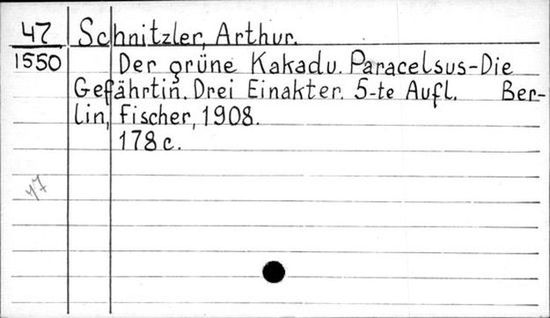 47 Schnitzler, Arthur.
1550 Der grüne Kakadu. Paracelsus-Die
Gefährtin. Drei Einakter. 5-te Aufl. Ber-
lin, Fischer, 1908.
178 c.
47